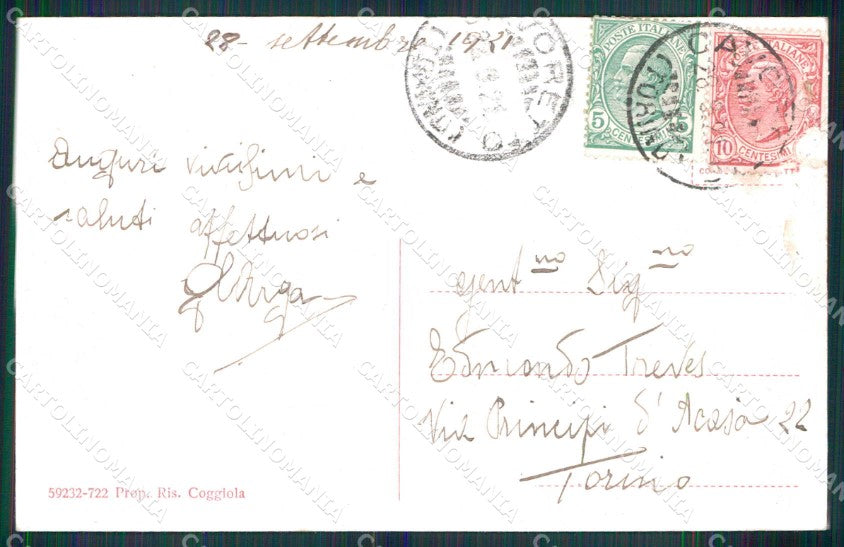 28 - settembre 1921
LORETO
POSTE ITALIANE
5
CENTESIMI
(TORINO)
ITALIANE
10
CENTESIMI
Auguri vivissimi e
saluti affettuosi
Gent no Sig no
Edmondo Treves
Via Principi d'Acaja 22
Torino
59232-722 Prop. Ris. Coggiola
CARTOLINOMANIA